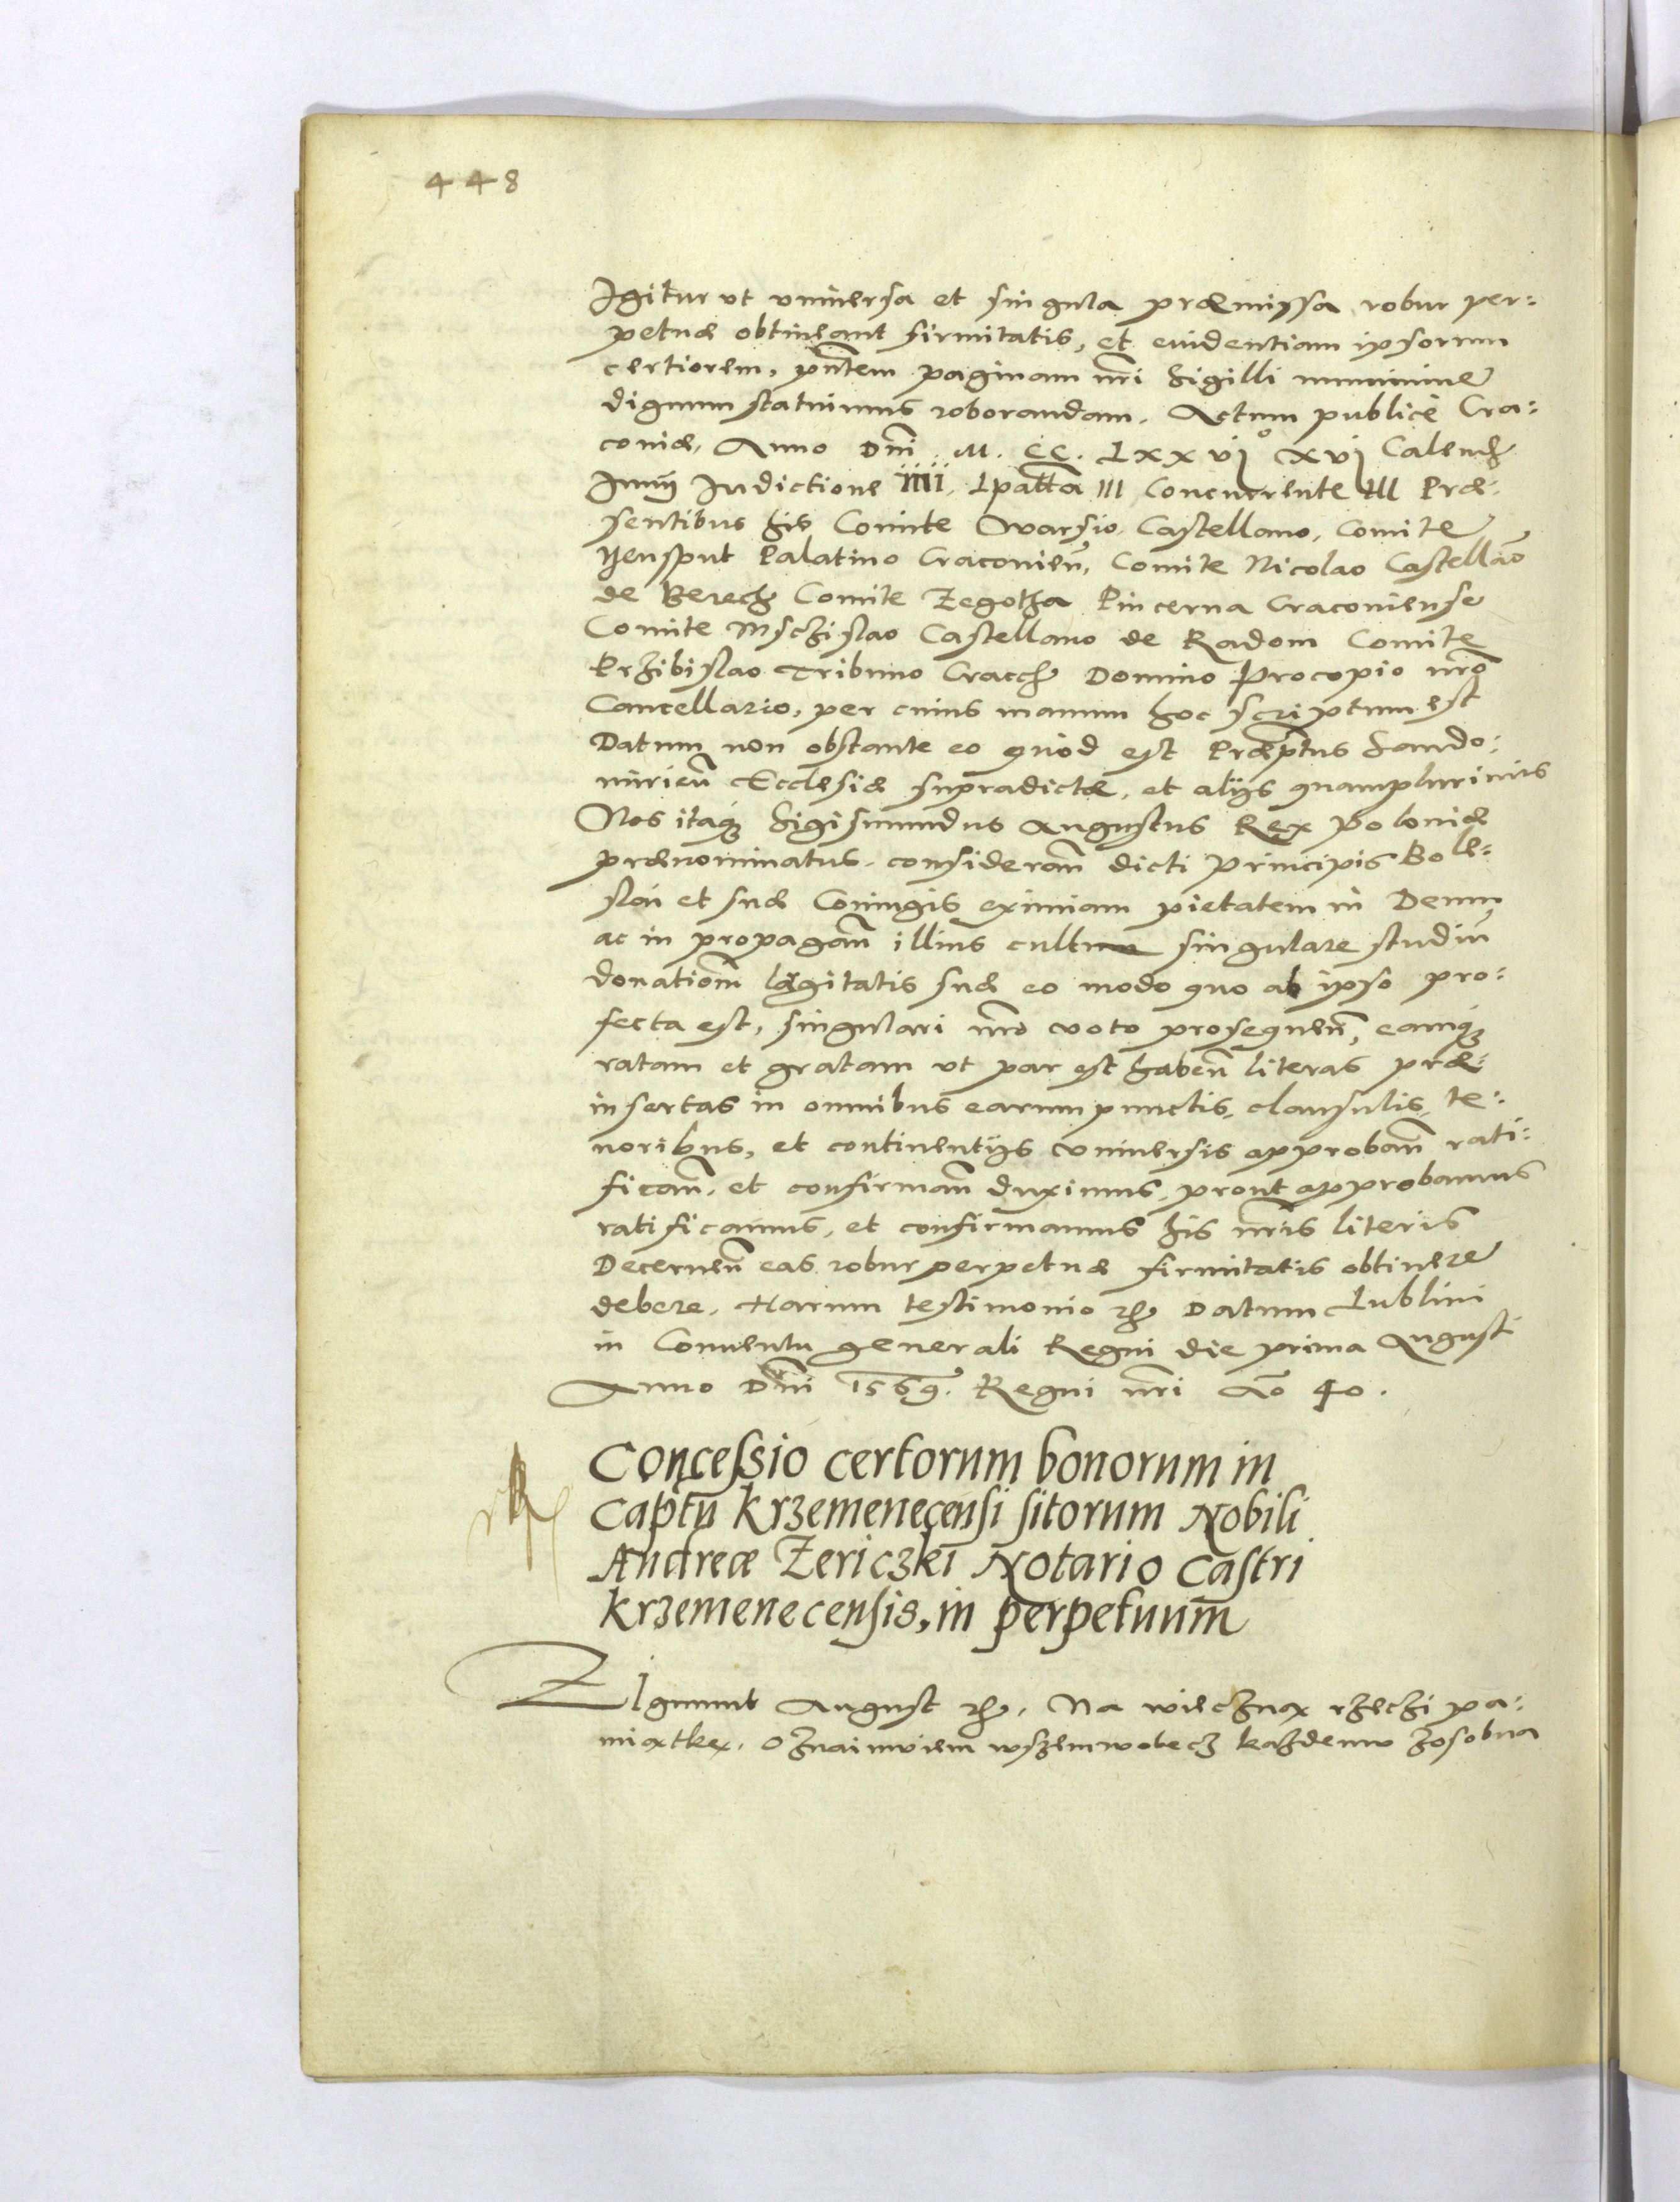 448
Igitur vt vniuersa et singula præmissa robur per:
petuæ obtineant firmitatis, et euidentiam ipsorum
certiorem, pntem paginam nri Sigilli munimine
dignum statuimus roborandam. Actum publice Cra:
couiæ, Anno Dni M. CC. LXXvj° xvj Calend
Junij Indictione iiii, Epacta III Concurrente III Præ:
sentibus his Comite Warsio Castellano, Comite
Pensput Palatino Cracouien, Comite Nicolao Castellao
de Beiech Comite Zegotha Pincerna Cracouiense
Comite Mschislao Castellano de Radom Comite
Przibislao Tribuno Cracch Domino Procopio nro
Cancellario, per cuius manum hoc scriptum est
Datum non obstante eo quod est Præptus Sando:
mirien Ecclesiæ supradictæ, et alijs quamplurimis
Nos itaq Sigismundus Augustus Rex Poloniæ
prænominatus. consideran dicti Principis Bole:
slai et suæ Coniugis eximiam pietatem in Deum
ac in propagan illius cultum singulare studiu
donationem largitatis suæ eo modo quo ab ipso pro:
fecta est, singulari nro voto prosequen, eamq
ratam et gratam vt par est haben literas præ:
insertas in omnibus earum punctis, clausulis, te:
noribus, et continentijs vniuersis approban rati:
fican, et confirman duximus, prout approbamus
ratificamus, et confirmamus his nris literis
Decernen eas robur perpetuæ firmitatis obtinere
debere. Harum testimonio etc Datum Lublini
in Conuentu generali Regni die prima Augusti
Anno Dni 1569. Regni nri Ao 40.
Concessio certorum bonorum in
Captu Krzemenecensi sitorum Nobili
Andreæ Zericzki Notario Castri
Krzemenecensis, in perpetuum
Zigmunt August etc. Na wiecznąx rzeczi pa:
miątkę. Oznaimuiem wszemwobecz każdemu zosobna